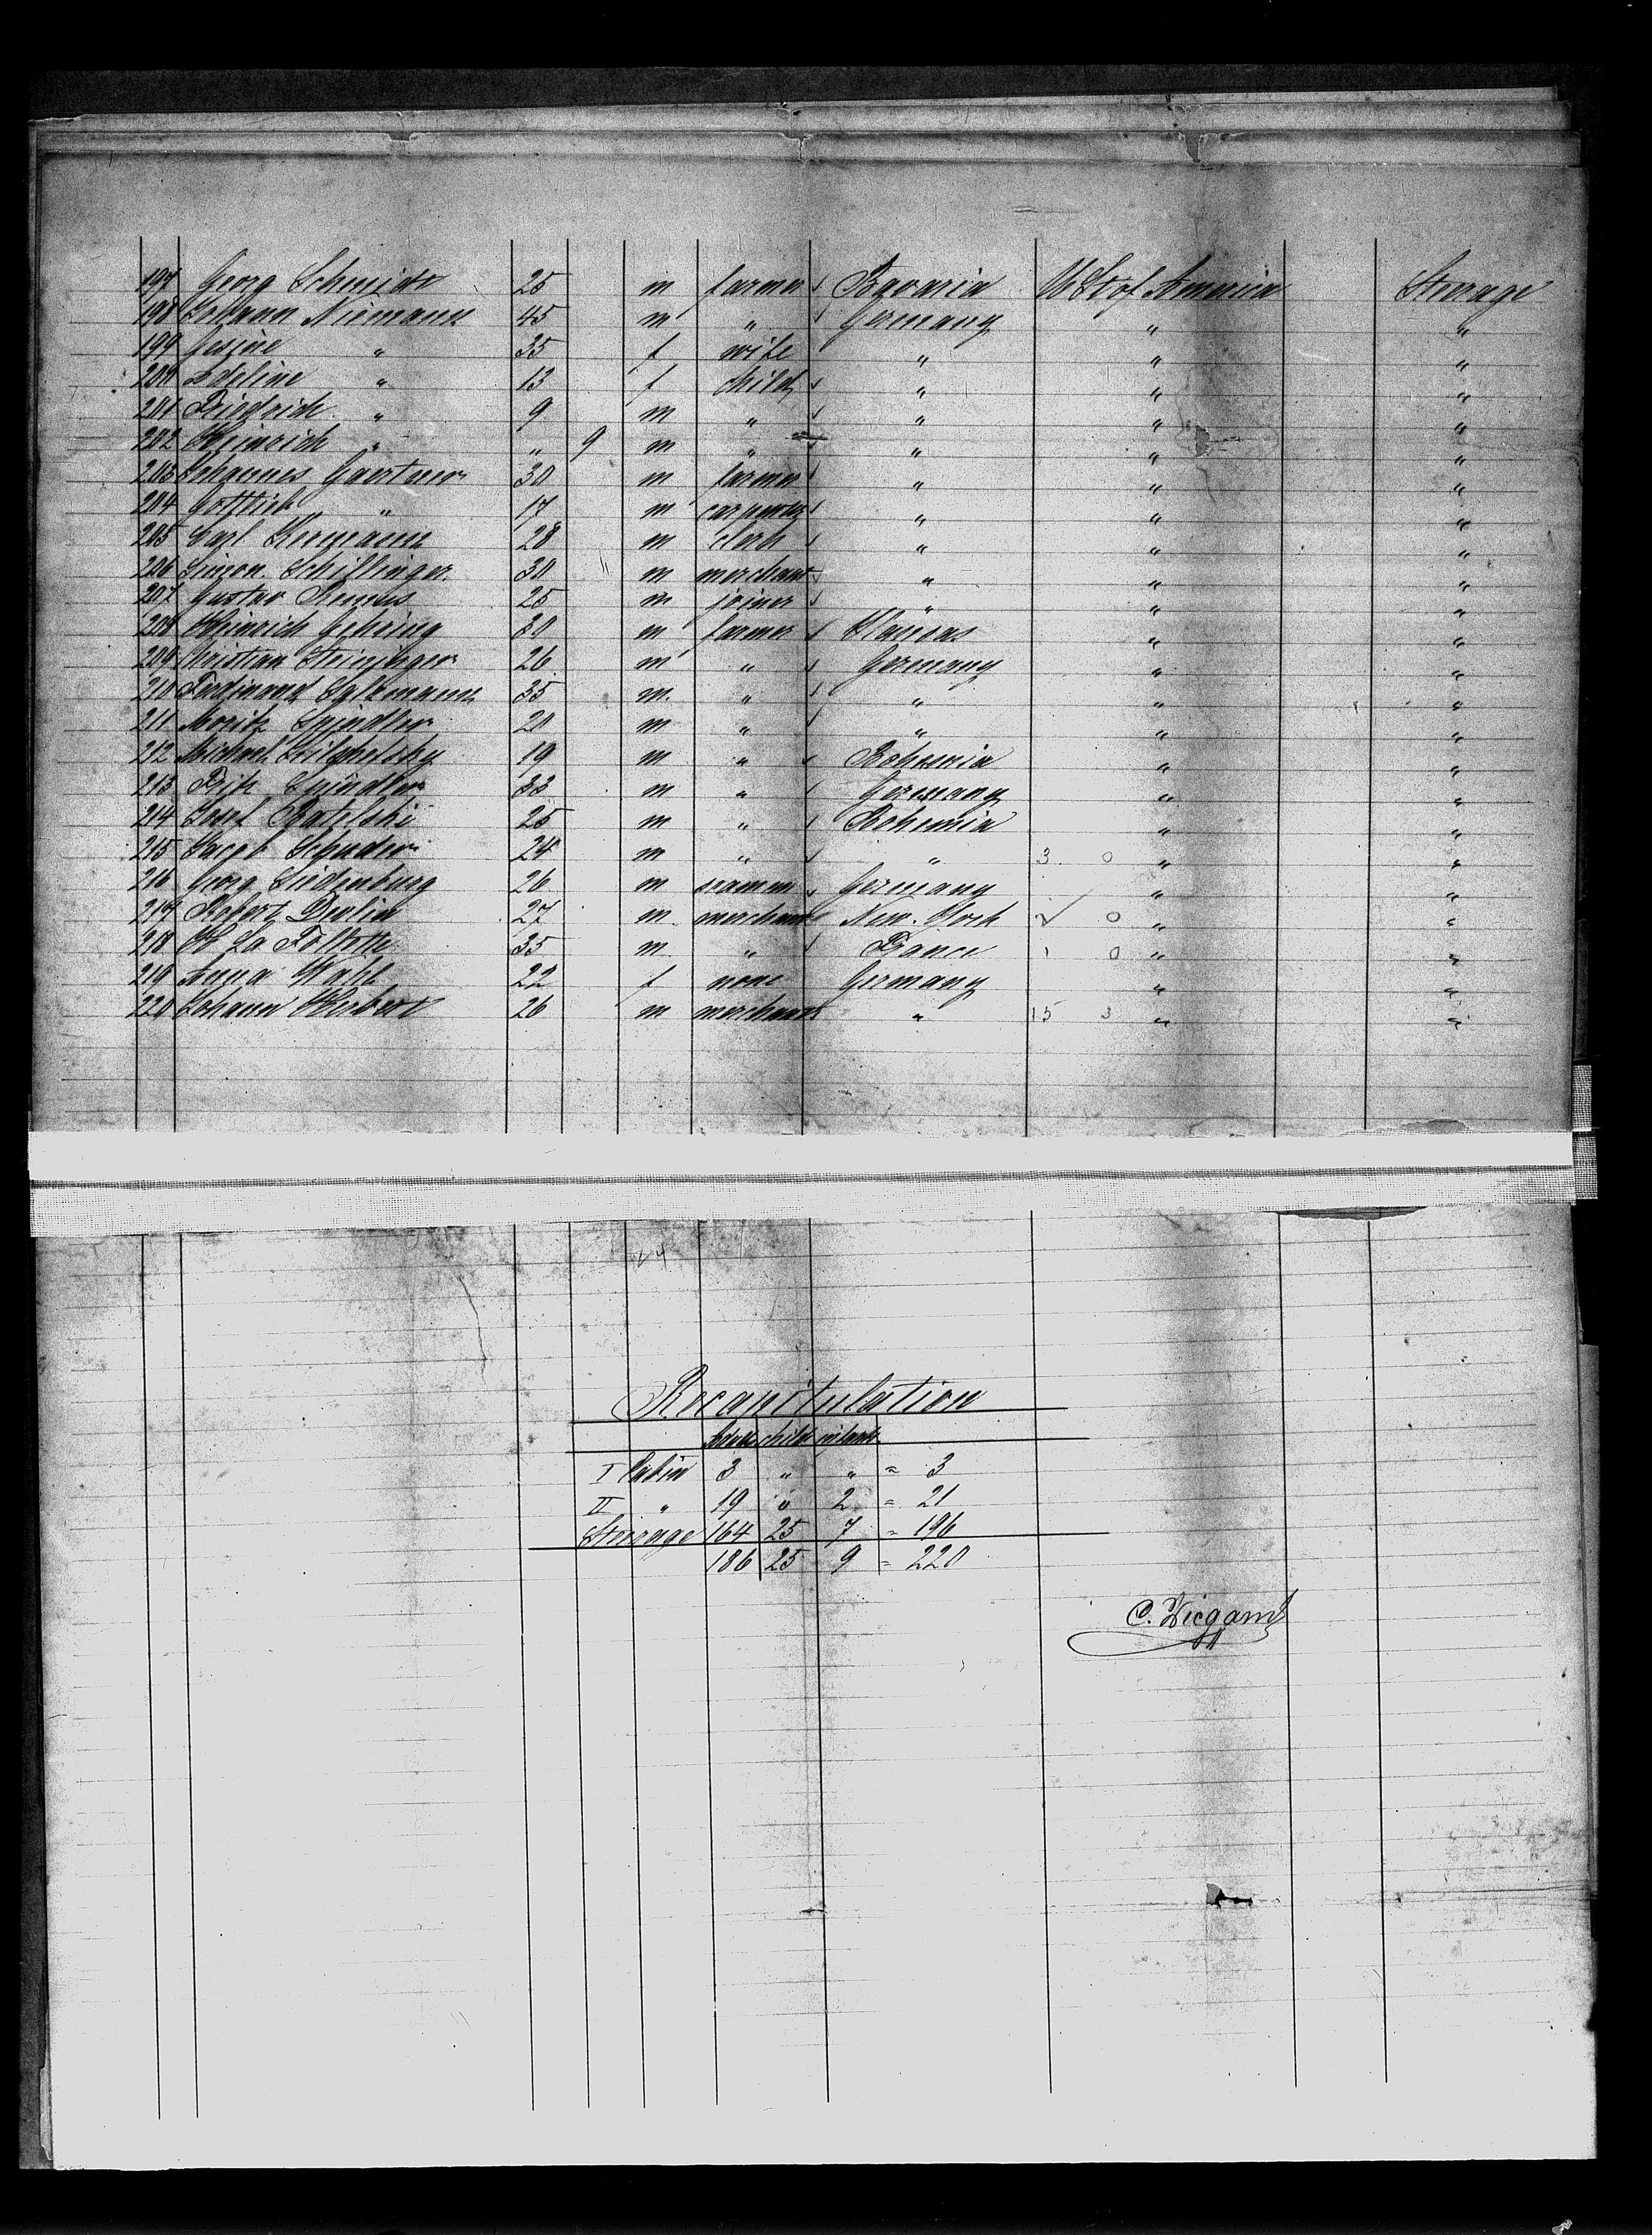 197 Georg Schmidt 25 m farmer ✓ Bavaria U St of America Steerage
198 Johann Niemann 45 m " ✓ Germany " "
199 Gesine " 35 f wife " " "
200 Adeline " 13 f child ✓ " " "
201 Friedrich " 9 m " ✓ " " "
202 Heinrich " " 9 m " ✓ " " "
203 Johannes Gaertner 30 m farmer ✓ " " "
204 Gottlieb " 17 m carpenter ✓ " " "
205 Carl 28 m clerk ✓ " " "
206 Simon Schillinger 30 m merchant ✓ " " "
207 Gustav 25 m joiner ✓ " " "
208 Heinrich Gehring 30 m farmer ✓ Kansas " "
209 Christian Steininger 26 m " ✓ Germany " "
210 Ferdinand 35 m " ✓ " " "
211 Moritz Spindler 20 m " ✓ " " "
212 Michael 19 m " ✓ Bohemia " "
213 Fritz Spindler 33 m " ✓ Germany " "
214 Josef 25 m " ✓ Bohemia " "
215 Jacob 24 m " ✓ " 3 0 " "
216 Georg Siedenburg 26 m seaman ✓ Germany " "
217 Robert Devlin 27 m merchant New York ✓ 0 " "
218 La Follotte 35 m " ✓ France 1 0 " "
219 Anna Wahl 22 f none Germany " "
220 Johann Herbert 26 m merchant " 15 3 " "
Recapitulation
Adults child infants
I Cabin 3 " " = 3
II " 19 " 2 = 21
Steerage 164 25 7 = 196
186 25 9 = 220
C. Wiegand